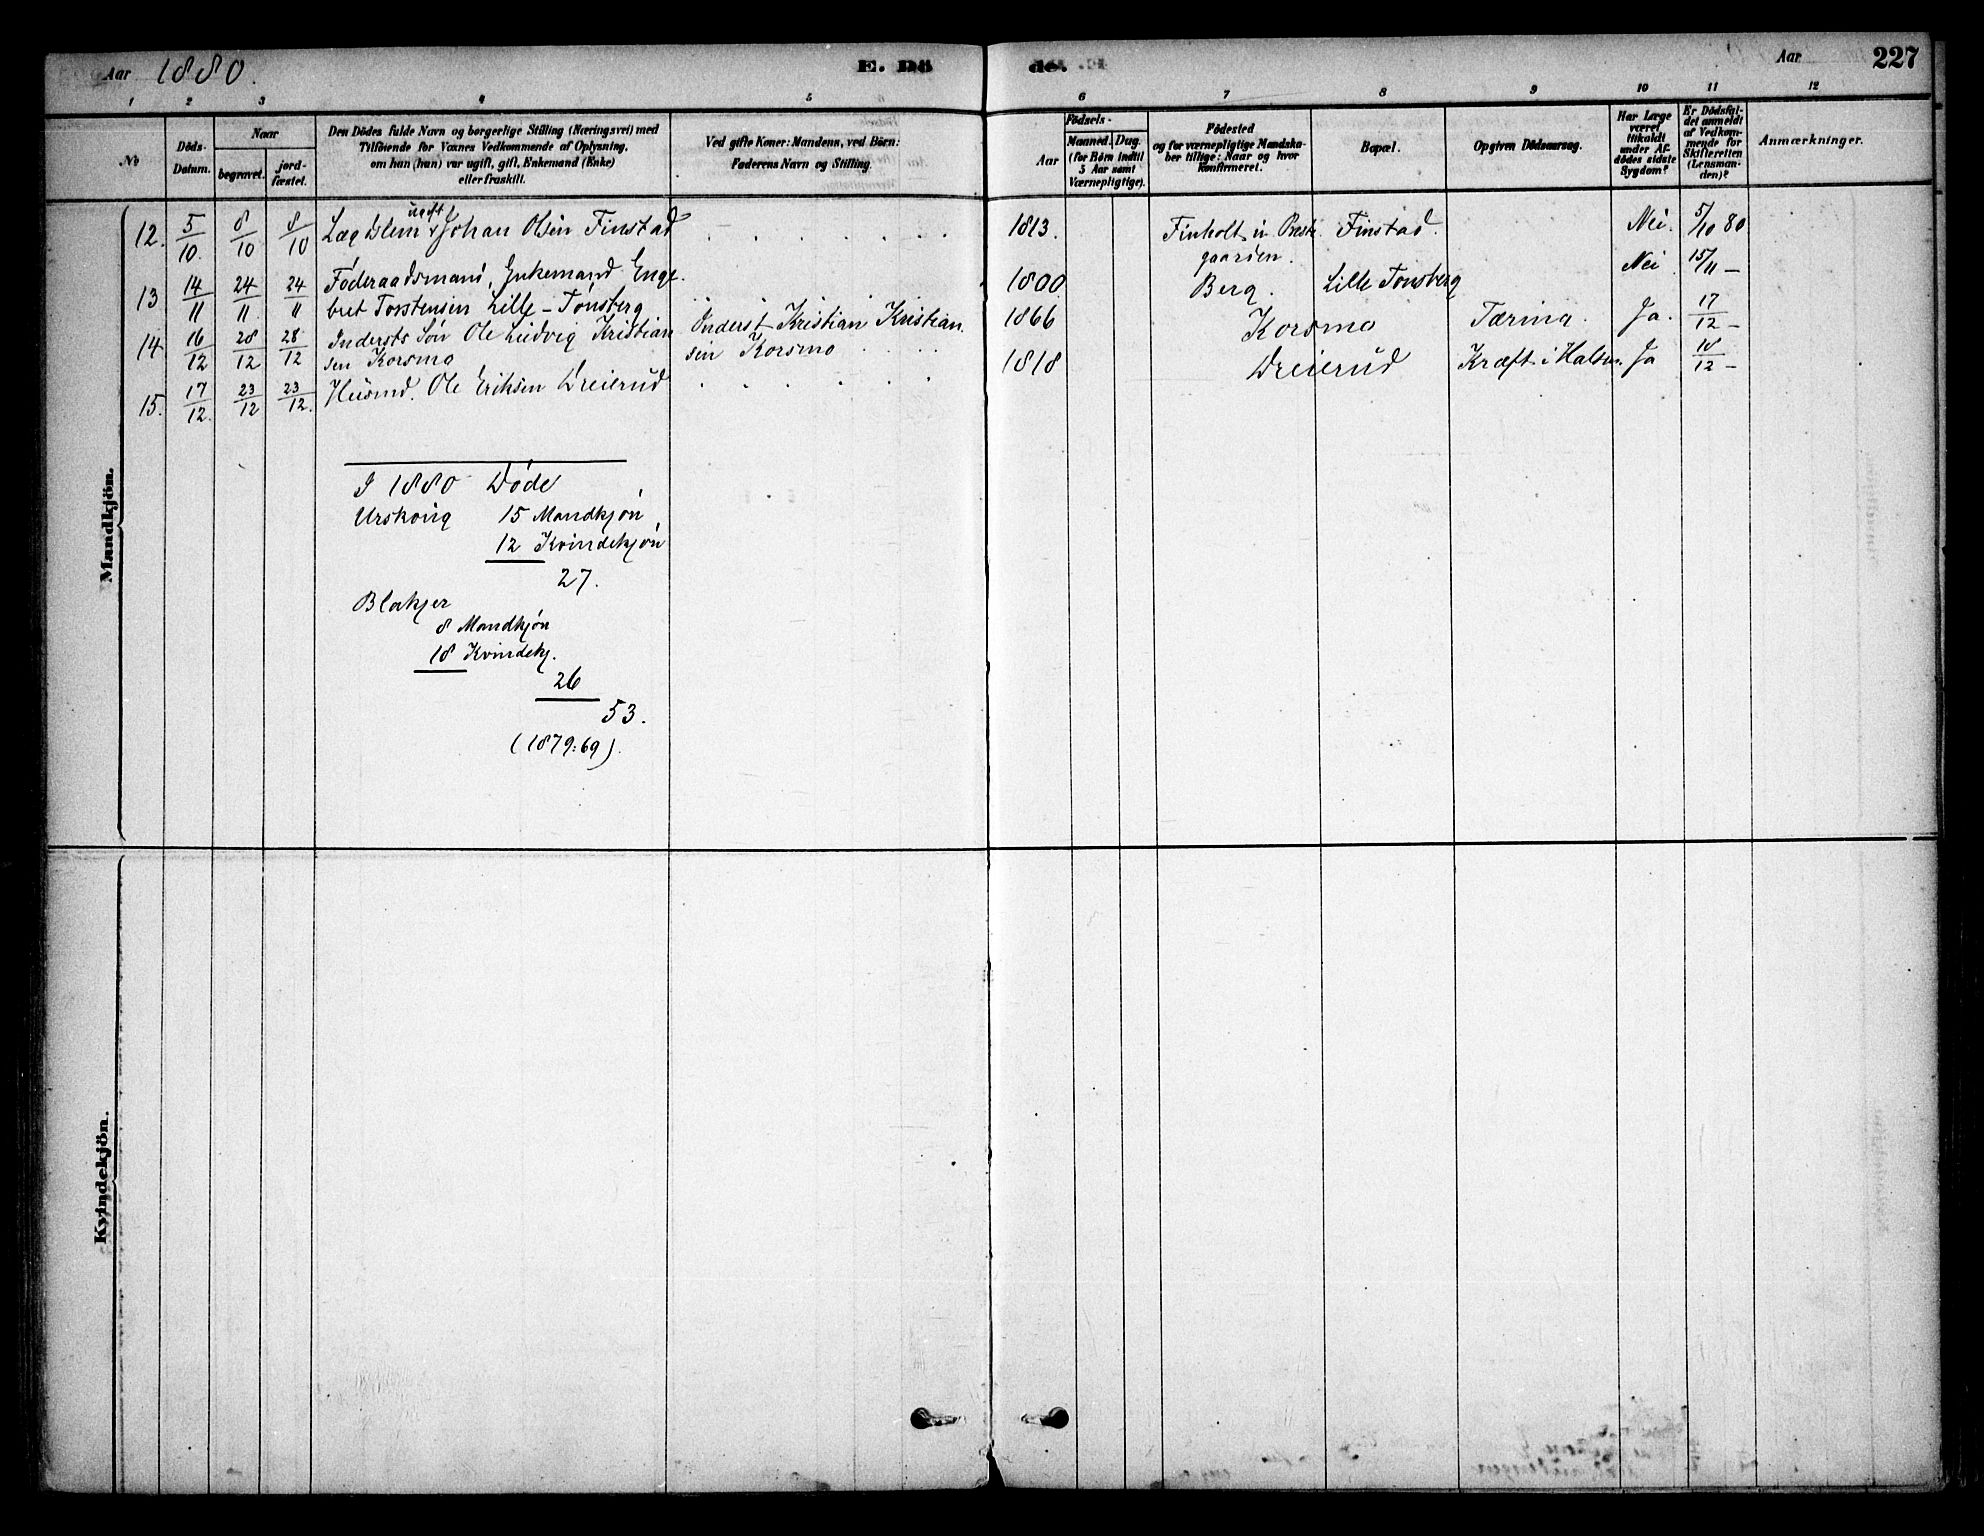 Aar 1880.
E. Dö
de.
Aar
227
1 2 3 4 5 6 7 8 9 10 11 12
No
Döds-
Datum.
Naar
begravet.
jord-
fæstet.
Den Dödes fulde Navn og borgerlige Stilling (Næringsvei) med
Tilföiende for Voxnes Vedkommende af Oplysning,
om han (hun) var ugift, gift, Enkemand (Enke)
eller fraskilt.
Ved gifte Koner: Mandens, ved Börn:
Faderens Navn og Stilling.
Födsels-
Aar
Maaned. Dag.
(for Börn indtil
5 Aar samt
Værnepligtige).
Födested
og for værnepligtige Mandska-
ber tillige: Naar og hvor
konfirmeret.
Bopæl.
Opgiven Dödsaarsag.
Har Læge
været
tilkaldt
under Af-
dödes sidste
Sygdom?
Er Dödsfal-
det anmeldt
af Vedkom-
mende for
Skifteretten
(Lensman-
den)?
Anmærkninger.
Mandkjön.
12. 5/10. 8/10 8/10 Læg dslem ugift Johan Olsen Finstad 1813. Finholt u. Prest- Finstad. Nei. 5/10 80
gaarden.
13 14/11 24/11. 24/11 Föderaadsmand, Enkemand Enge- 1800. Berg. Lille Tonsberg Nei 15/11 –
bret Torstensen Lille-Tönsberg
14 16/12 28/12 28/12 Indersts Sön Ole Ludvig Kristian Inderst Kristian Kristian 1866 Korsmo Tæring. Ja. 17/12 –
sen Korsmo sen Korsmo
15. 17/12. 23/12 23/12. Husmd. Ole Eriksen Dreierud 1818 Dreierud Kræft i Halsen. Ja 18/12 –
I 1880 Döde
Urskoug 15 Mandkjön
12 Kvindekjön
27.
Blakjer
8 Mandkjön
18 Kvindekj.
26
53.
(1879: 69).
Kvindekjön.